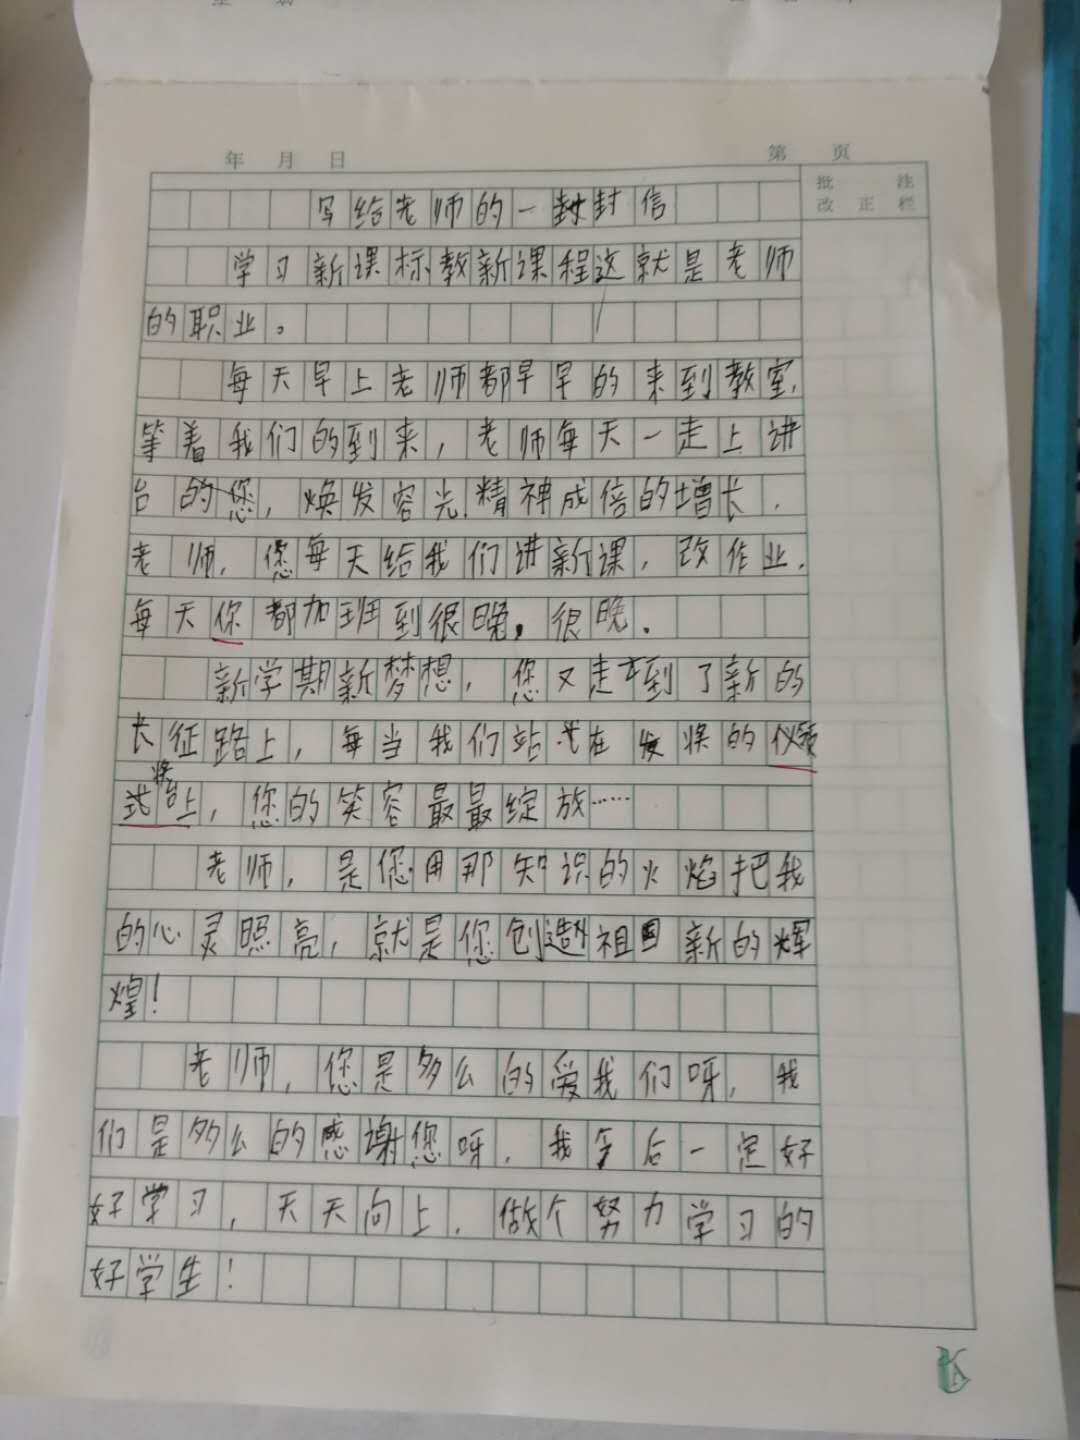 年 月 日 第 页
批 注
改 正 栏
写给老师的一封信
学习新课标教新课程这就是老师
的职业。
每天早上老师都早早的来到教室,
等着我们的到来,老师每天一走上讲
台的您,焕发容光,精神成倍的增长.
老师,您每天给我们讲新课,改作业.
每天你都加班到很晚,很晚.
新学期新梦想,您又走到了新的
长征路上,每当我们站在发奖的仪
式台上,您的笑容最最绽放……
老师,是您用那知识的火焰把我
的心灵照亮,就是您创造祖国新的辉
煌!
老师,您是多么的爱我们呀,我
们是多么的感谢您呀,我今后一定好
好学习,天天向上.做个努力学习的
好学生!